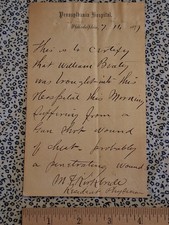 Pennsylvania Hospital.
Philadelphia, 7
This is to certify
that William
was brought into this
Hospital this Morning
suffering from a
Gun shot wound
of chest probably
a penetrating wound
M. F. Kirkbride
Resident Physician